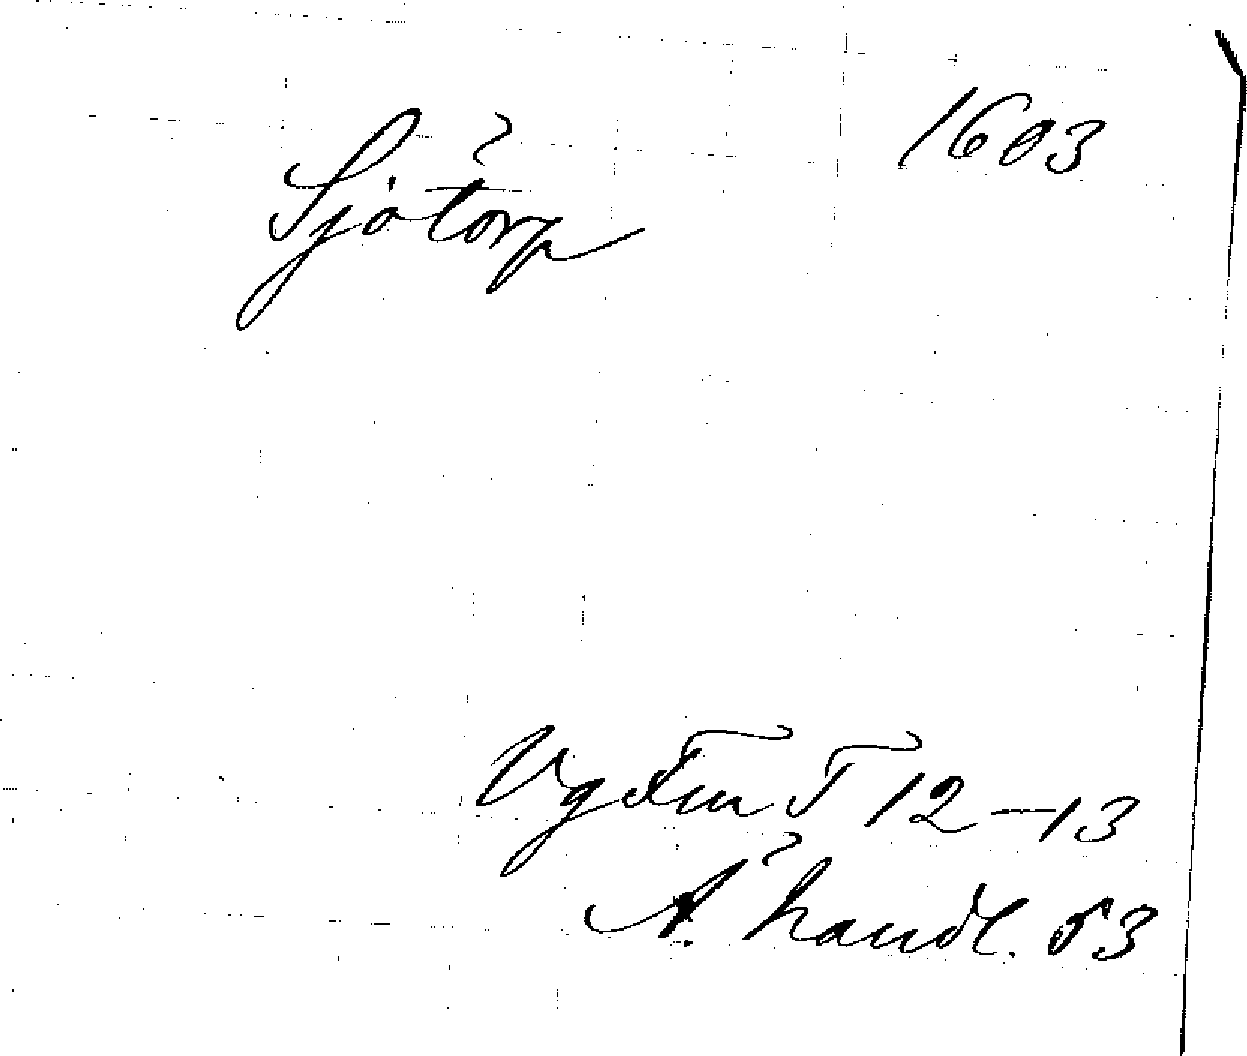 Sjötorp 1603
Vg Fm T 12-13
Å. handl. 53